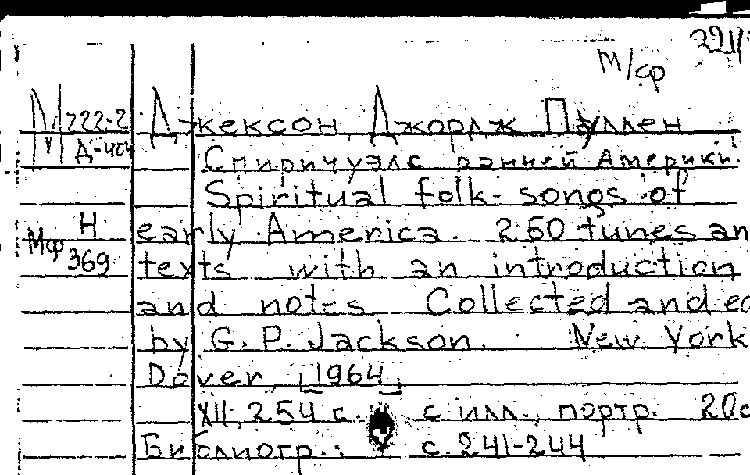 М/ф
М 722-2 Джексон, Джордж Пуллен
Спиричуэлс ранней Америки.
Spiritual folk-songs of
early America. 250 tunes an
Мф Н 369
texts with an introduction
and notes. Collected and ed
by G. P. Jackson. New York
Dover, 1964
XII, 254 с. с илл., портр. 20с
Библиогр.: с. 241-244